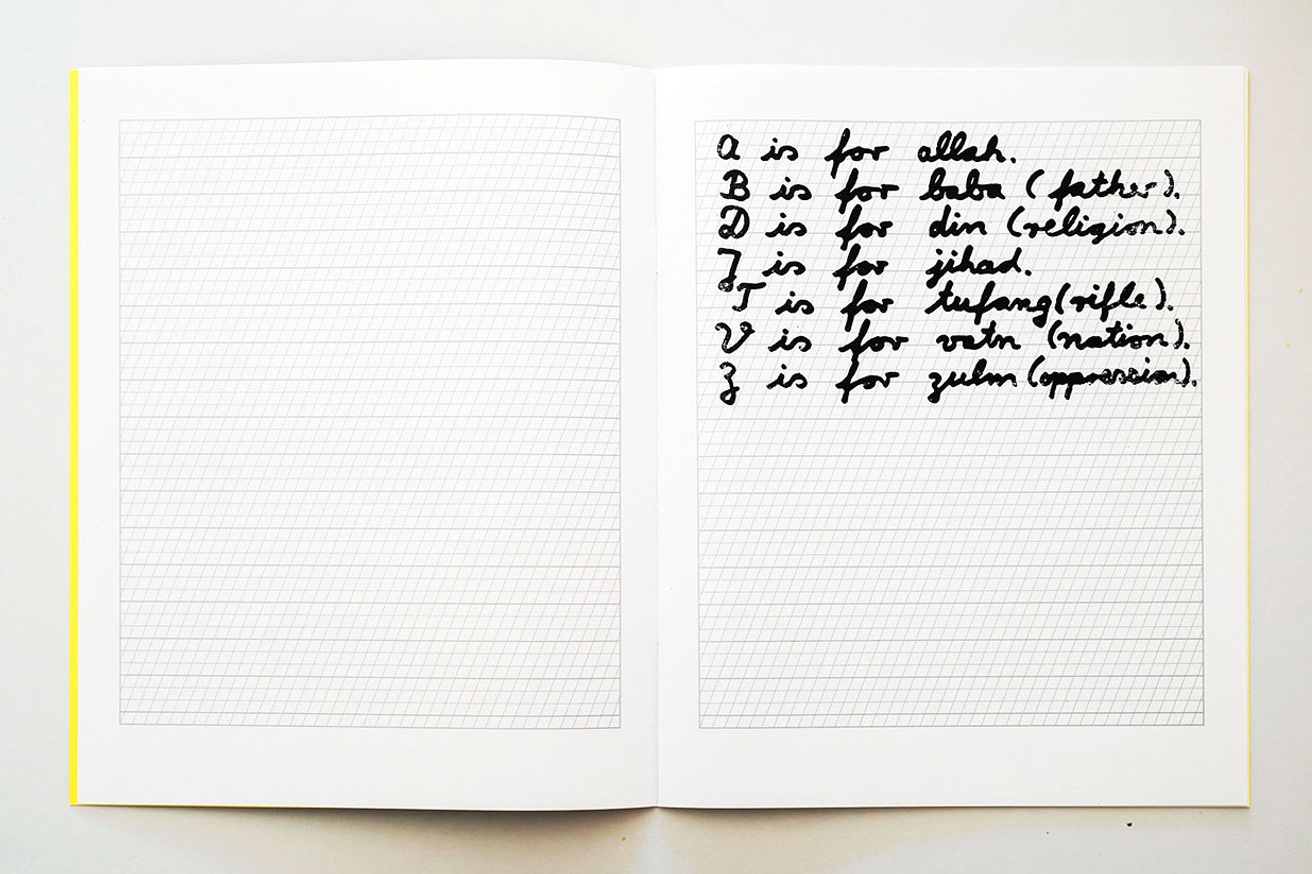 A is for allah.
B is for baba (father).
D is for din (religion).
J is for jihad.
T is for tufang (rifle).
V is for vatn (nation).
Z is for zulm (oppression).